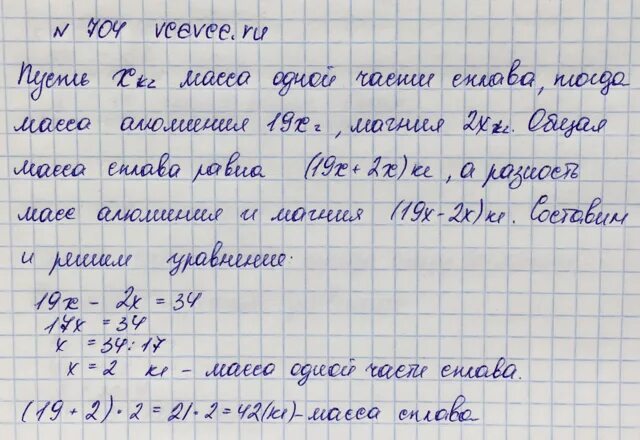 № 704 vcevce.ru
Пусть x кг масса одной части сплава, тогда
масса алюминия 19x г, магния 2x кг. Общая
масса сплава равна (19x + 2x) кг, а разность
масс алюминия и магния (19x - 2x) кг. Составим
и решим уравнение.
19x - 2x = 34
17x = 34
x = 34 : 17
x = 2 кг - масса одной части сплава.
(19 + 2) · 2 = 21 · 2 = 42 (кг) - масса сплава